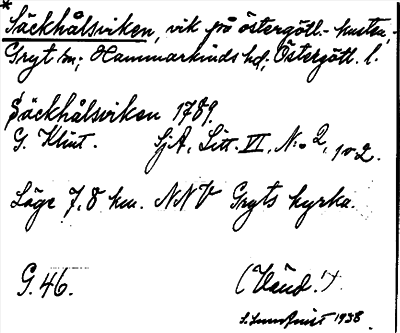 *
Säckhålsviken, vik på östergötl.-kusten,
Gryt sn; Hammarkinds hd; Östergötl. l.
Säckhålsviken 1789.
G. Klint. SjA, Litt. VI, N:o 2, 1 o 2.
Läge 7,8 km. NNV Gryts kyrka.
G. 46. (Vänd!).
S. Lundqvist 1938.